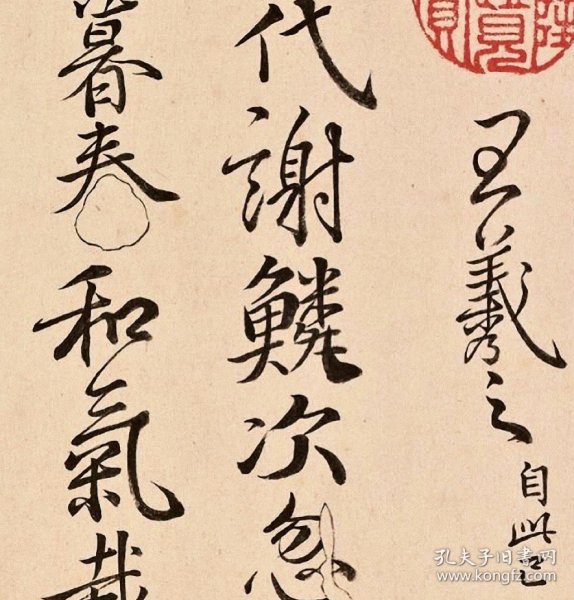 王羲之
自此已
代謝鱗次忽
暮春和氣載
孔夫子旧书网
www.kongfz.com